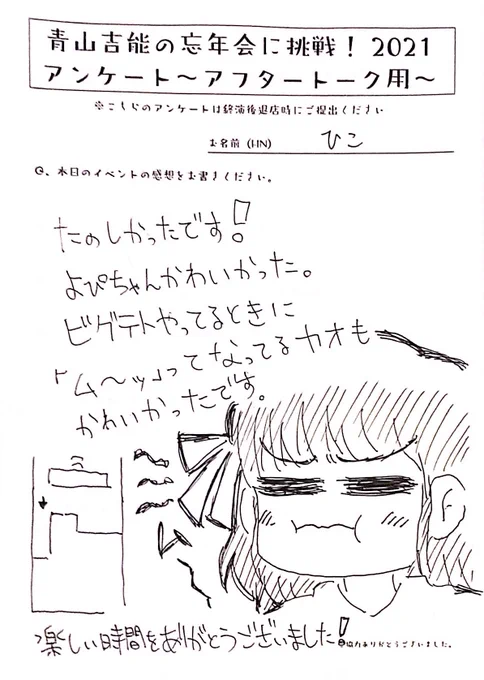 青山吉能の忘年会に挑戦！2021
アンケート〜アフタートーク用〜
※こちらのアンケートは終演後退店時にご提出ください
お名前（HN）　ひこ
Q、本日のイベントの感想をお書きください。
たのしかったです！
よぴちゃんかわいかった。
ビグテトやってるときに
「ム〜ッ」ってなってるカオも
かわいかったです。
ム
楽しい時間をありがとうございました！
ご協力ありがとうございました。